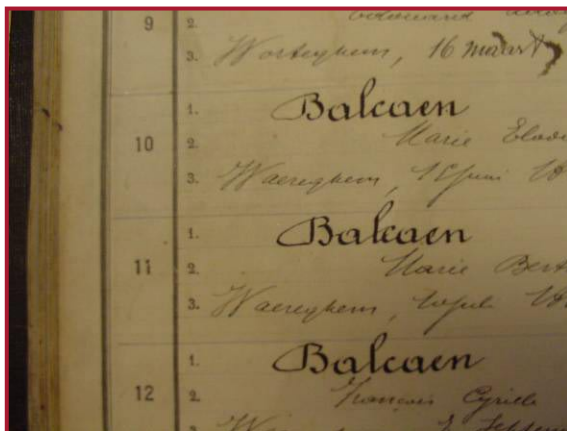 9 2.
3. Worteghem, 16 maart
1. Balcaen
10 2. Marie Elod
3. Waereghem, Juni 18
1. Balcaen
11 2. Marie Bert
3. Waereghem, Juli 18
1. Balcaen
12 2. François Cyrille
3.